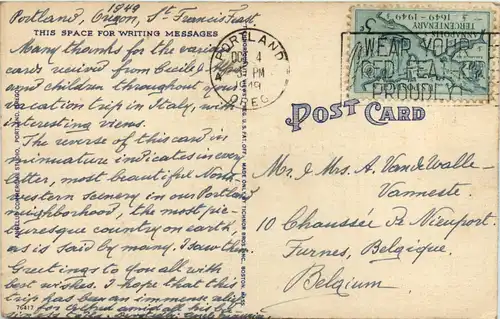 1949
Portland, Oregon, St. Francis Feast
THIS SPACE FOR WRITING MESSAGES
Many thanks for the various
cards received from Cecile J. M.
and children throughout your
vacation trip in Italy, with
interesting views.
The reverse of this card in
minuature indicates in every
letter, most beautiful North-
western scenery in our Portland
neighborhood, the most pic-
turesque country on earth,
as is said by many. I saw them.
Greetings to you all with
best wishes. I hope that this
trip has been an immense
76417
PORTLAND
OCT 4
PM
1949
OREG.
TERCENTENARY
1649-1949
WEAR YOUR
RED FEATHER
PROUDLY
POST CARD
Mr. & Mrs. A. VandeWalle-
Vanneste.
10 Chaussée de Nieuport.
Furnes, Belgique.
Belgium.